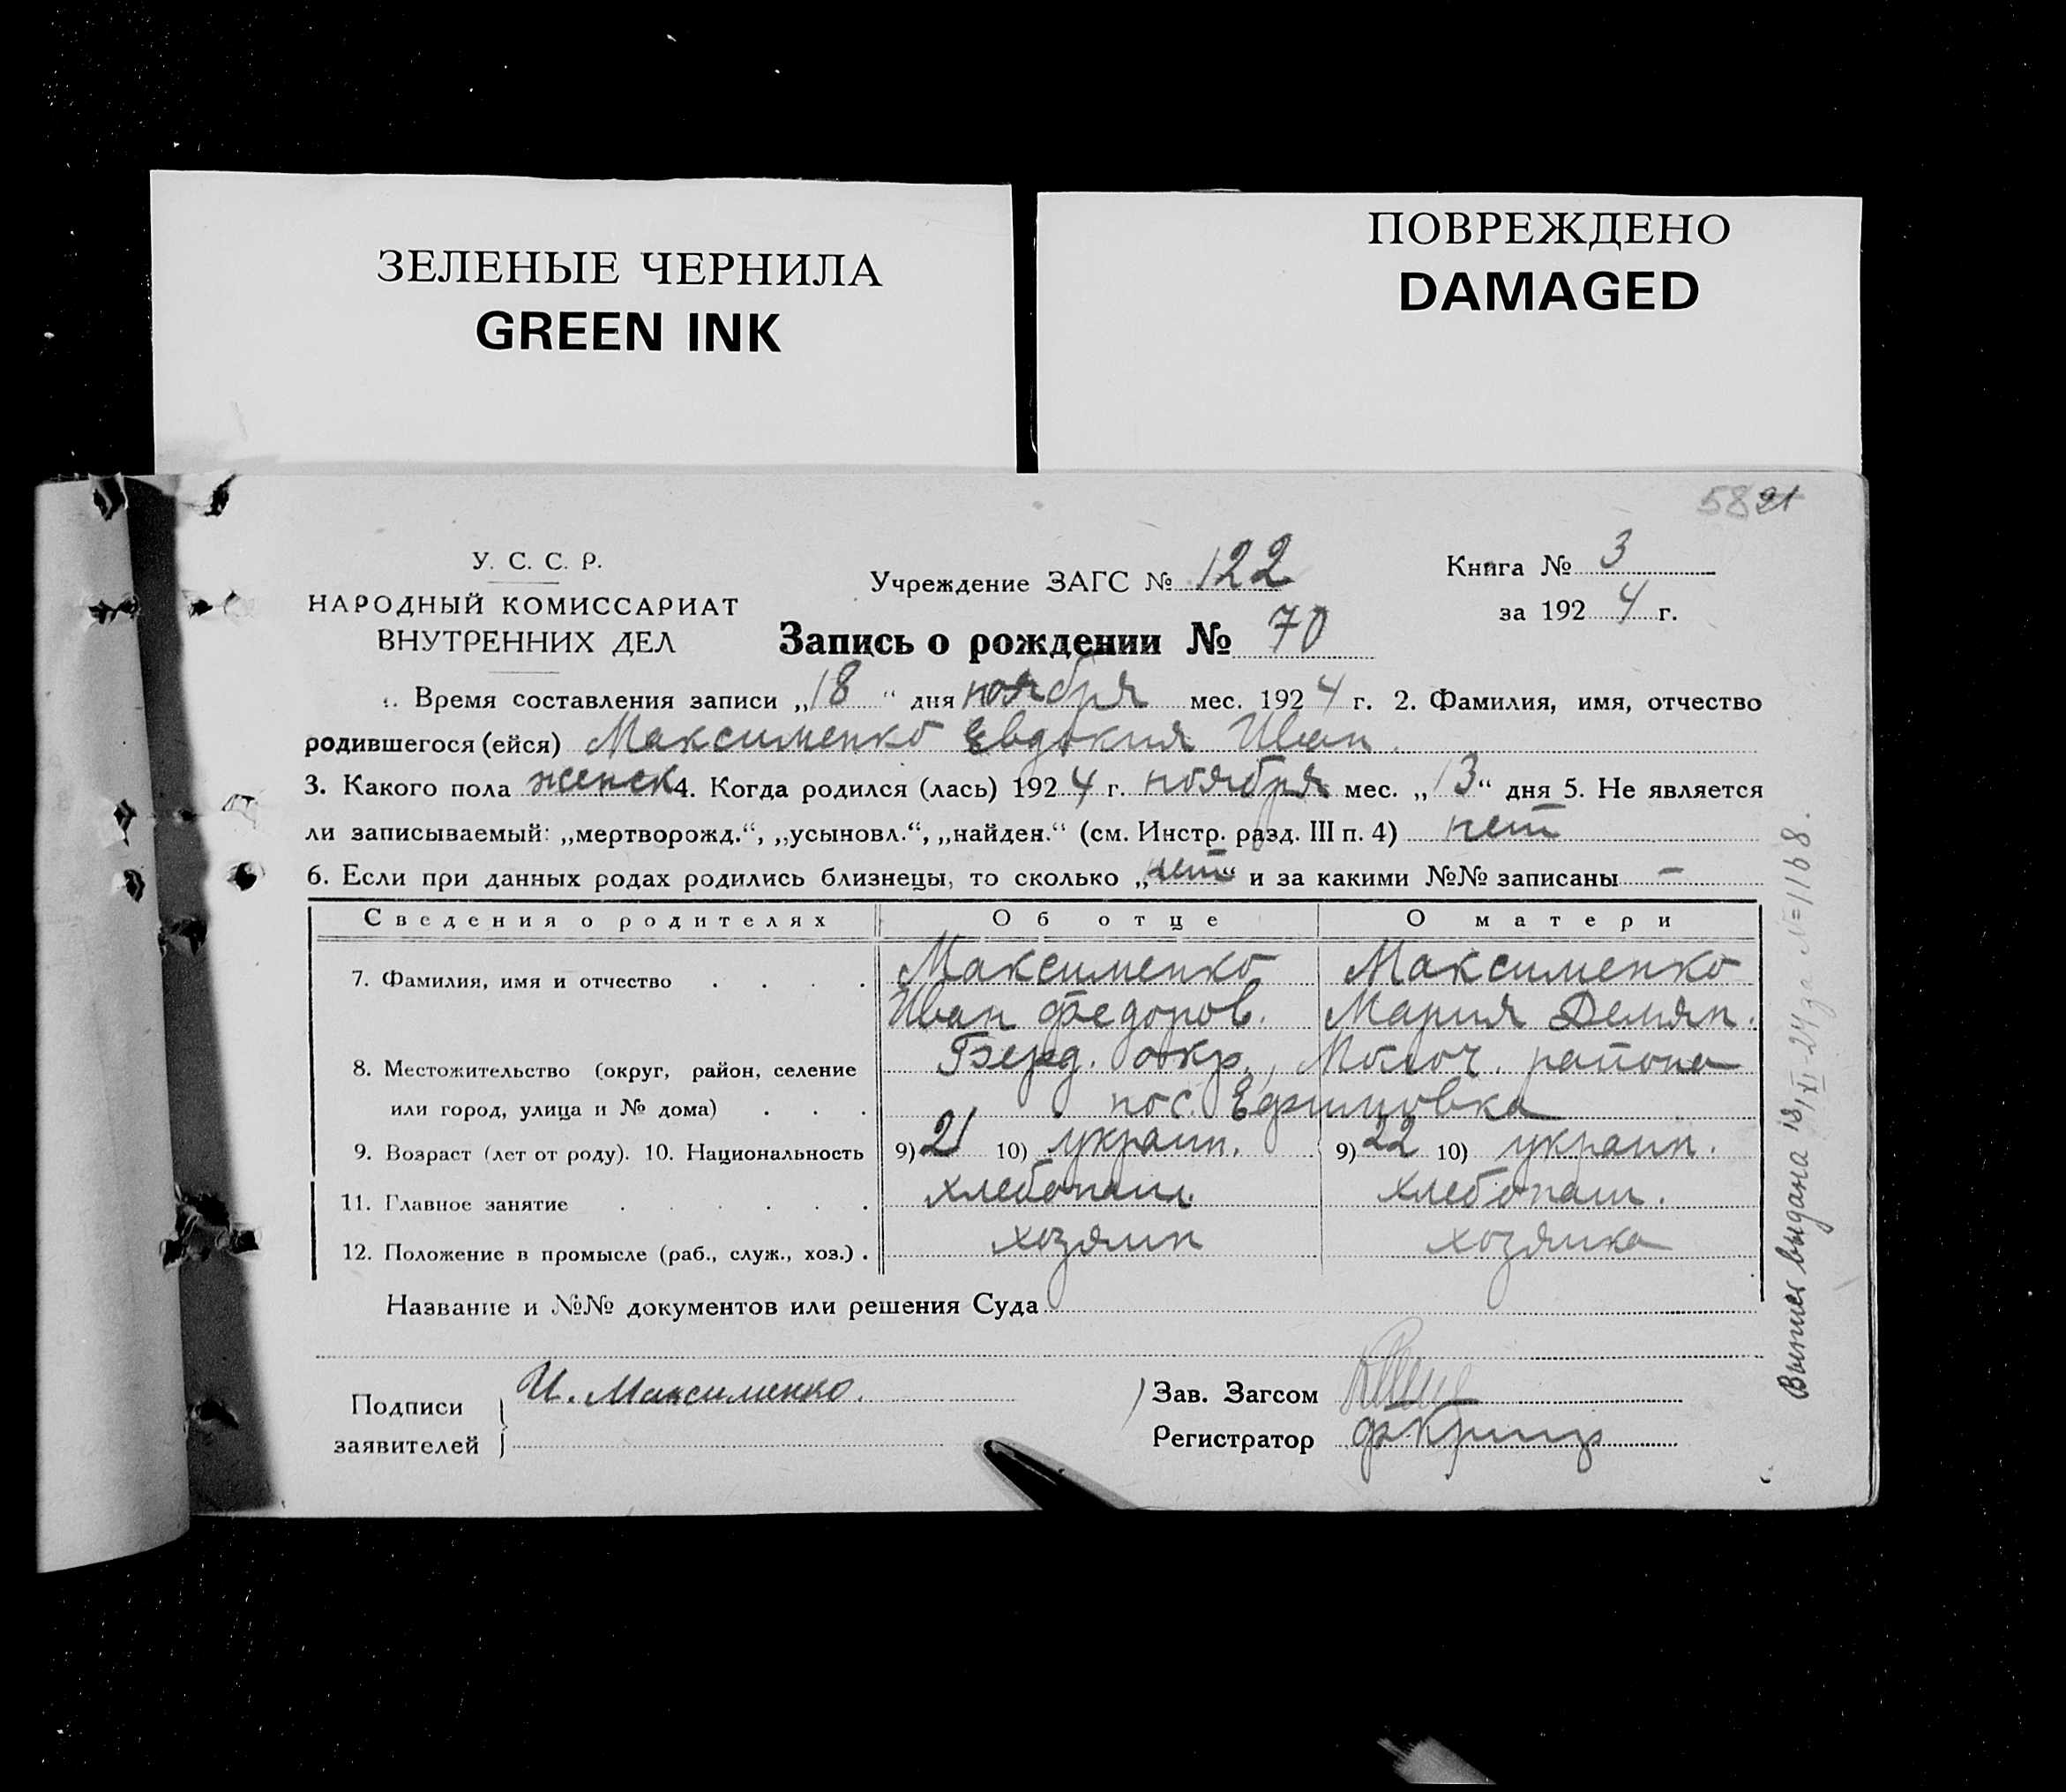 ЗЕЛЕНЫЕ ЧЕРНИЛА
GREEN INK
ПОВРЕЖДЕНО
DAMAGED
58 21
У. С. С. Р.
НАРОДНЫЙ КОМИССАРИАТ
ВНУТРЕННИХ ДЕЛ
Учреждение ЗАГС № 122
Книга № 3
за 1924 г.
Запись о рождении № 70
1. Время составления записи „18“ дня ноября мес. 1924 г. 2. Фамилия, имя, отчество
родившегося (ейся) Максименко Евдокия Иван.
3. Какого пола женск 4. Когда родился (лась) 1924 г. ноября мес. „13“ дня 5. Не является
ли записываемый: „мертворожд.“, „усыновл.“, „найден.“ (см. Инстр. разд. III п. 4) нет
6. Если при данных родах родились близнецы, то сколько „нет“ и за какими №№ записаны —
Сведения о родителях Об отце О матери
7. Фамилия, имя и отчество . . . . Максименко Максименко
Иван Федоров. Мария Демян.
8. Местожительство (округ, район, селение Берд. окр., Молоч. района
или город, улица и № дома) . . . пос. Ефимовка
9. Возраст (лет от роду). 10. Национальность 9) 21 10) украин. 9) 22 10) украин.
11. Главное занятие . . . . . . хлебопаш. хлебопаш.
12. Положение в промысле (раб., служ., хоз.) . хозяин хозяйка
Название и №№ документов или решения Суда
Подписи
заявителей
И. Максименко.
Зав. Загсом
Регистратор
Выпись выдана 18/XI-24 за №=1168.